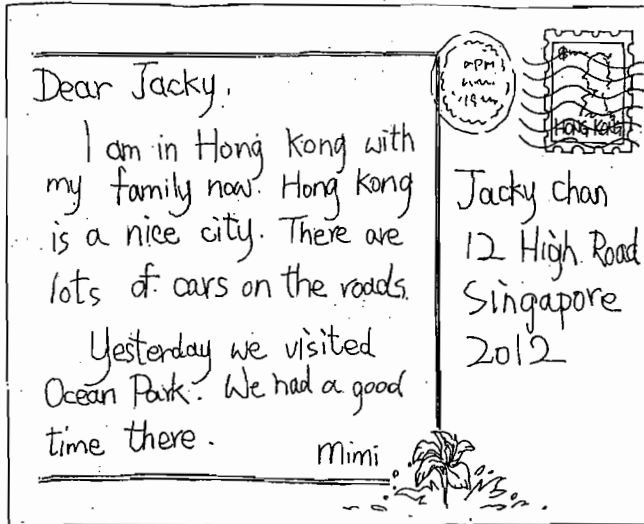 Dear Jacky,
I am in Hong Kong with
my family now. Hong Kong
is a nice city. There are
lots of cars on the roads.
Yesterday we visited
Ocean Park. We had a good
time there.
Mimi
HONG KONG
Jacky Chan
12 High Road
Singapore
2012